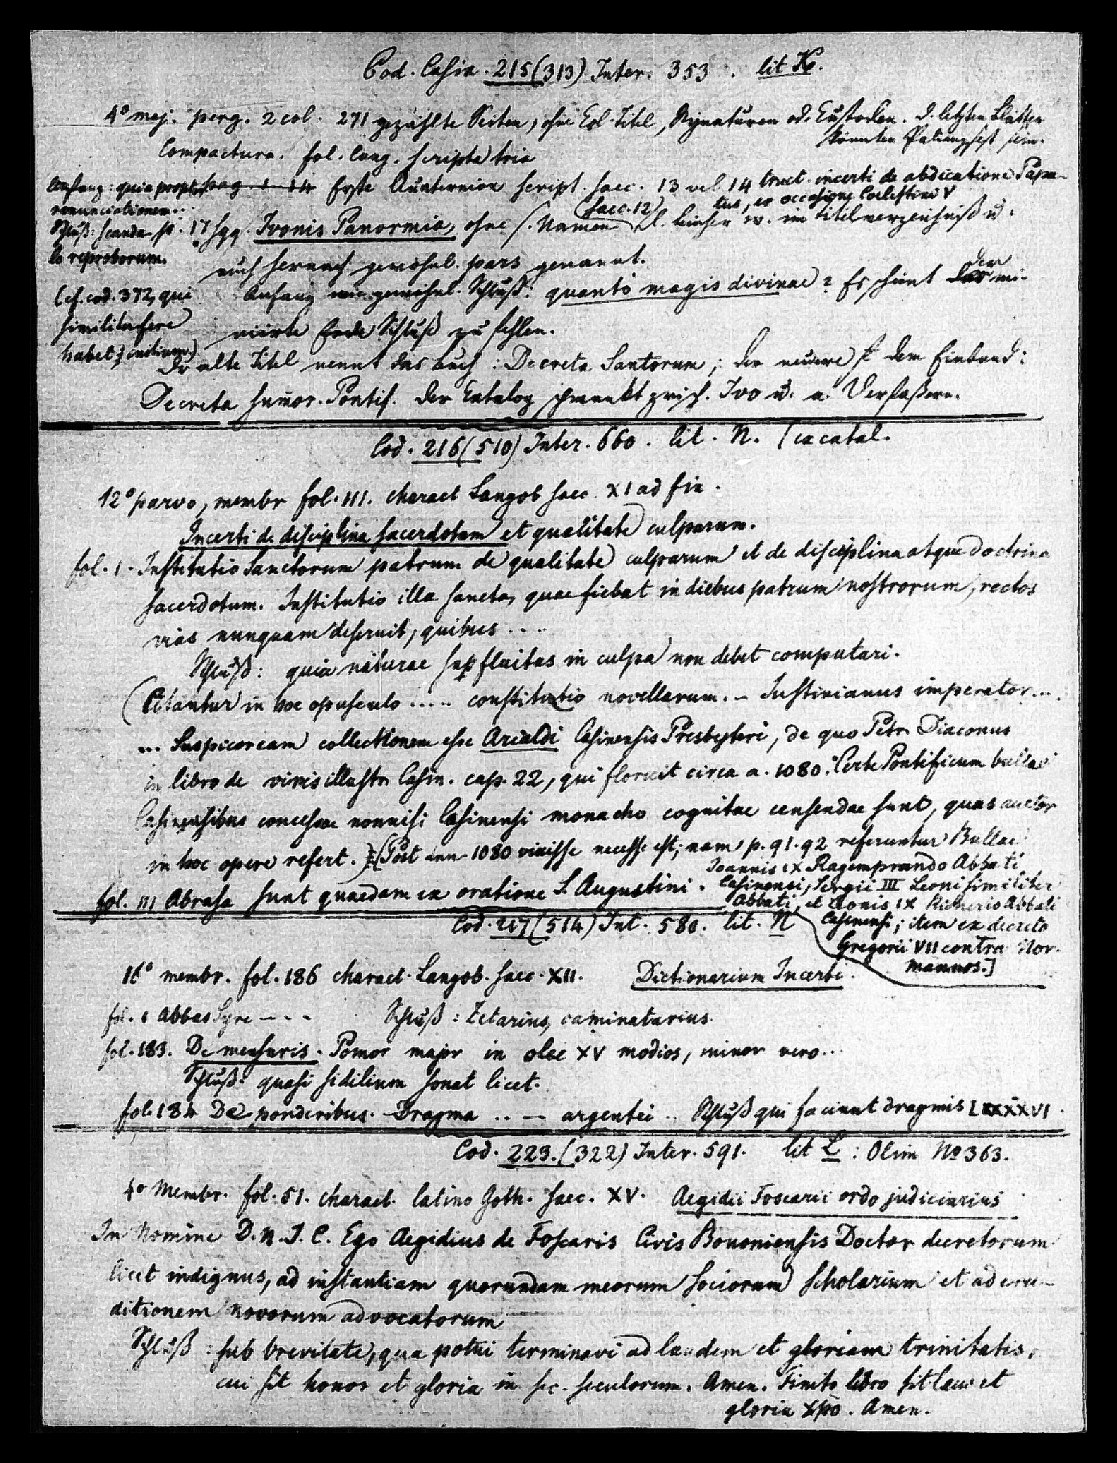 Cod. Casin. 215 (313) Inter. 353. lit K.
4° maj. perg. 2 col. 271 gezählte Seiten, ohne Titel, Signaturen od. Custoden. d. letzten Blätter
könnten Palimpsest sein.
Compactura. fol. lang. scripta tria
Anfang: quia propter pag 1-14 Erste Quaternion script. saec. 13 vel 14 tract. incerti de abdicatione Papa-
tus, ex occasione Coelestini V
renunciationem..
Schluß: scanda-
la reproborum.
p. 17 sqq. Ivonis Panormia, ohne s. Namen (saec. 12) w. im Titelverzeichniß u.
auch hernach gewöhnl. pars genannt.
(cf. cod. 372, qui
simile fere
habet initium)
Anfang wie gewöhnl. Schluß: quanto magis divinae? Es scheint der mi-
nierte Schluß zu fehlen.
Der alte Titel nennt das Buch: Decreta Sanctorum; der neuere dem Einband:
Decreta summor. Pontif. der Catalog schwankt zwisch. Ivo u. a. Verfaßern.
Cod. 216 (510) Inter. 660. lit. N. (ex catal.
12° parvo, membr fol. 111. charact Langob saec. XI ad fin.
Incerti de disciplina sacerdotum et qualitate culparum.
fol. 1. Institutio Sanctorum patrum de qualitate culparum et de disciplina atque doctrina
sacerdotum. Institutio illa sancta, quae fiebat in diebus patrum nostrorum, rectas
vias nunquam deseruit, quibus ....
Schluß: quia naturae superfluitas in culpa non debet computari.
(Citantur in hoc opusculo ..... constitutio novellarum. - Justinianus imperator....
... Suspicor eam collectionem esse Arialdi Casinensis Presbyteri, de quo Petr. Diaconus
in libro de viris illustr. Casin. cap. 22, qui floruit circa a. 1080. Certe Pontificum bullae
Casinensibus concessae nonnisi Casinensi monacho cognitae censendae sunt, quas auctor
in hoc opere refert. ) [Post ann 1080 vixisse necesse est; nam p. 91. 92 referuntur Bullae
Joannis IX Ragemprando Abbati
Casinensi, Sergii III Leoni similiter
Abbati, et Leonis IX Richerio Abbati
Casinensi; item ex decreto
Gregorii VII contra Nor-
mannos.]
fol. 111 Abrasa sunt quaedam ex oratione S. Augustini.
Cod. 217 (514) Int. 580. lit. N
membr. fol. 186 charact. Langob. saec. XII. Dictionarium Incerti.
fol. 1 Abbas Syre - - - Schluß: Zetarius, caminatarius.
fol. 183. De mensuris. Gomor major in olee XV modios, minor vero...
Schluß: quasi sidilium sonat licet.
fol. 184 De ponderibus. Dragma .. - argentei .. Schluß qui faciunt dragmis LXXXXVI.
Cod. 223. (322) Inter. 591. lit L: Olim N° 363.
4° Membr. fol. 51. charact. latino Goth. saec. XV. Aegidii Foscarii ordo judiciarius
In Nomine D. N. J. C. Ego Aegidius de Foscaris Civis Bononiensis Doctor decretorum
licet indignus, ad instantiam quorundam meorum sociorum scholarium et ad eru-
ditionem novorum advocatorum
Schluß: sub brevitate, qua potui terminavi ad laudem et gloriam trinitatis,
cui sit honor et gloria in sec. seculorum. Amen. Finito libro sit laus et
gloria Xpo. Amen.